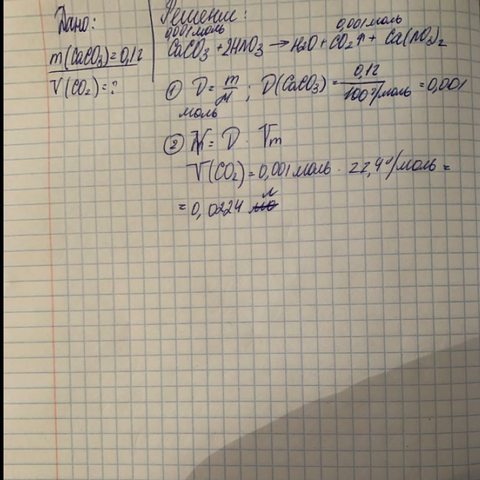 Дано:
m(CaCO₃)=0,1г
V(CO₂)=?
Решение:
0,001моль 0,001моль
CaCO₃ + 2HNO₃ → H₂O + CO₂↑ + Ca(NO₃)₂
① D = m/M ; D(CaCO₃) = 0,1г/100г/моль = 0,001
моль
② V = D · Vm
V(CO₂) = 0,001моль · 22,4л/моль =
= 0,0224 л